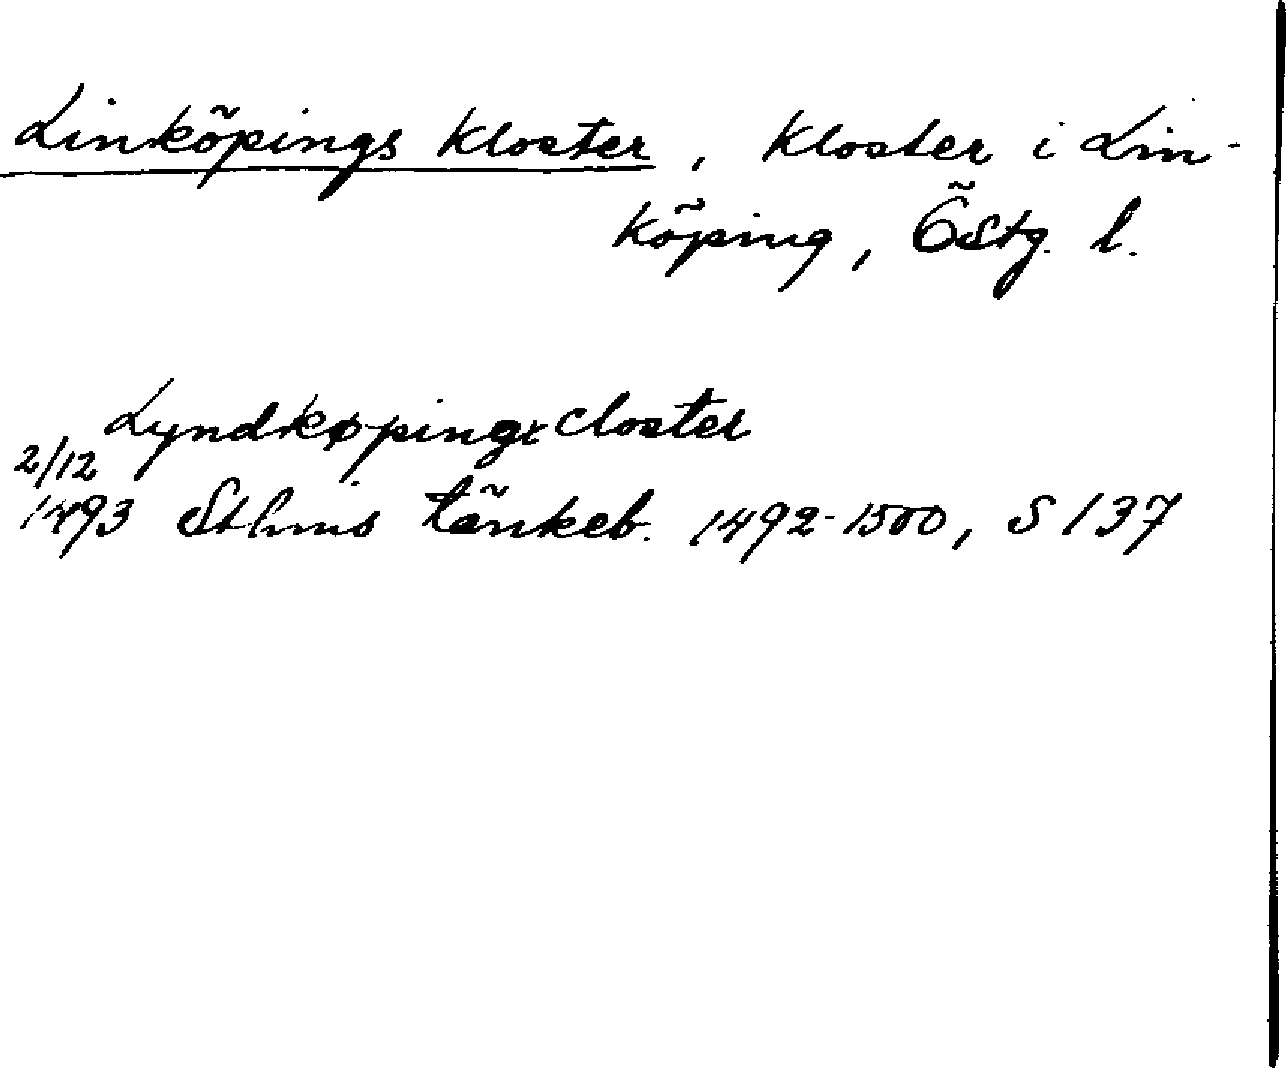 Linköpings kloster, kloster i Lin-
köping, Östg. l.
Lyndkøpingx closter
2/12
1493 Sthms tänkeb. 1492-1500, S 137